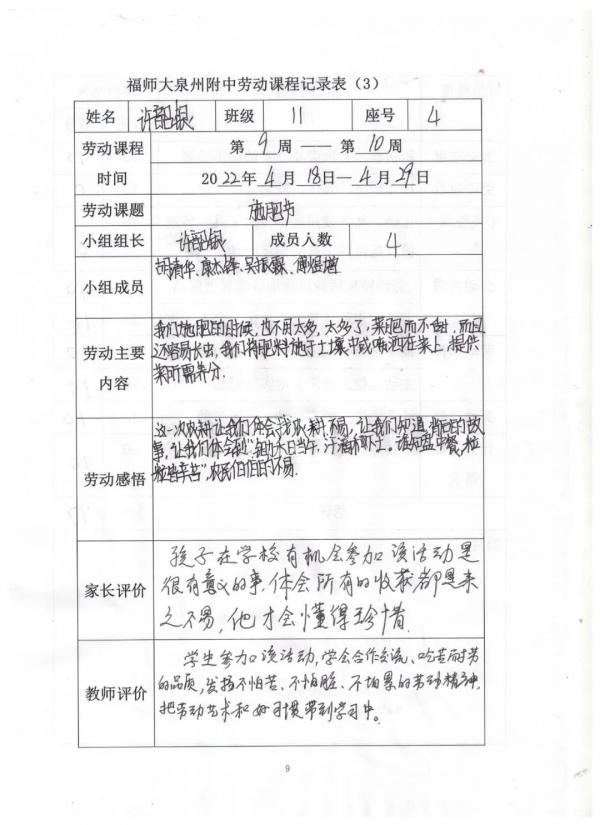 福师大泉州附中劳动课程记录表（3）
姓名 许韶银 班级 11 座号 4
劳动课程 第 9 周 —— 第 10 周
时间 2022年4月18日—4月29日
劳动课题 施肥节
小组组长 许韶银 成员人数 4
小组成员 胡清华、康杰锋、吴振霖、傅煜增
劳动主要内容
我们施肥的时候，也不用太多，太多了，菜肥而不甜，而且
还容易长虫，我们将肥料施于土壤中或喷洒在菜上，提供
菜所需养分.
劳动感悟
这一次农耕让我们体会到农耕不易，让我们知道背后的故
事，让我们体会到“锄禾日当午，汗滴禾下土。谁知盘中餐，粒
粒皆辛苦”，农民伯伯的不易.
家长评价
孩子在学校有机会参加该活动是
很有意义的事，体会所有的收获都是来
之不易，他才会懂得珍惜.
教师评价
学生参加该活动，学会合作交流、吃苦耐劳
的品质，发扬不怕苦、不怕脏、不怕累的劳动精神，
把劳动艺术和好习惯带到学习中。
9